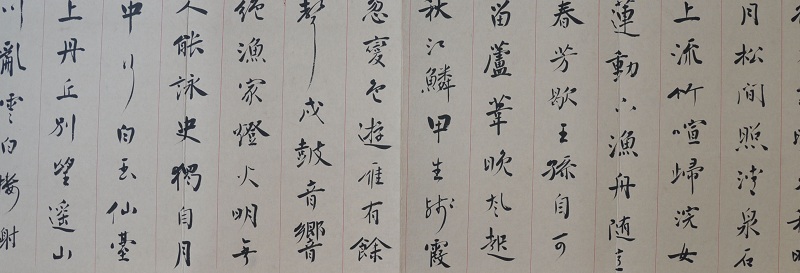 月松間照清泉石
上流竹喧歸浣女
蓮動下漁舟随意
春芳歇王孫自可
留蘆葦晚風起
秋江鱗甲生殘霞
忽變色遊雁有餘
聲戍鼓音響
絕漁家燈火明無
人能詠史獨自月
中行白玉仙臺
上丹丘別望遥山
川亂雲日樓榭